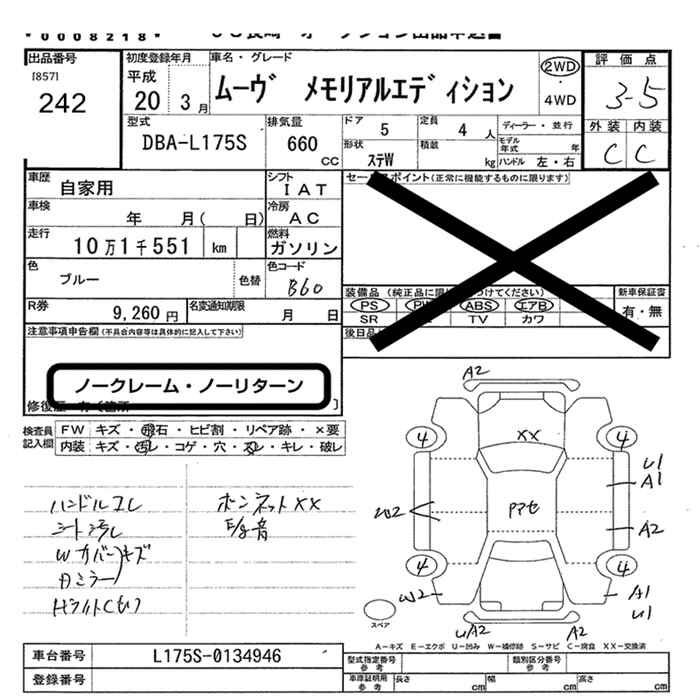 *0008218*
出品番号
[857]
242
初度登録年月
平成
20 3月
車名・グレード
ムーヴ メモリアルエディション
2WD
・
4WD
評価点
3-5
外装 内装
C C
型式
DBA-L175S
排気量
660
CC
ドア 5
形状
ステW
定員 4 人
積載 kg
ディーラー・並行
モデル年式 年
ハンドル 左・右
車歴
自家用
シフト
IAT
車検
年 月( 日)
冷房
AC
走行
10万1千551 km
燃料
ガソリン
色
ブルー
色替
色コード
B60
R券
9,260円
名変通知期限
月 日
セールスポイント(正常に機能するものに限ります)
装備品
PS ABS エアB
SR TV カワ
新車保証書
有・無
後日品
注意事項申告欄(不具合内容等は具体的に記入して下さい)
ノークレーム・ノーリターン
検査員
記入欄
FW キズ・飛石・ヒビ割・リペア跡・×要
内装 キズ・汚レ・コゲ・穴・スレ・キレ・破レ
ハンドルスレ
シート汚レ
Wカバーキズ
Dミラー
ボンネットXX
E/g音
A2
4 4
XX
U1
A1
W2
A2
4 4
W2
A1
U1
UA2 A2
スペア
A-キズ E-エクボ U-凹み W-補修跡 S-サビ C-腐食 XX-交換済
車台番号
L175S-0134946
登録番号
型式指定番号
参考
類別区分番号
参考
車庫証明用
参考
長さ cm 幅 cm 高さ cm